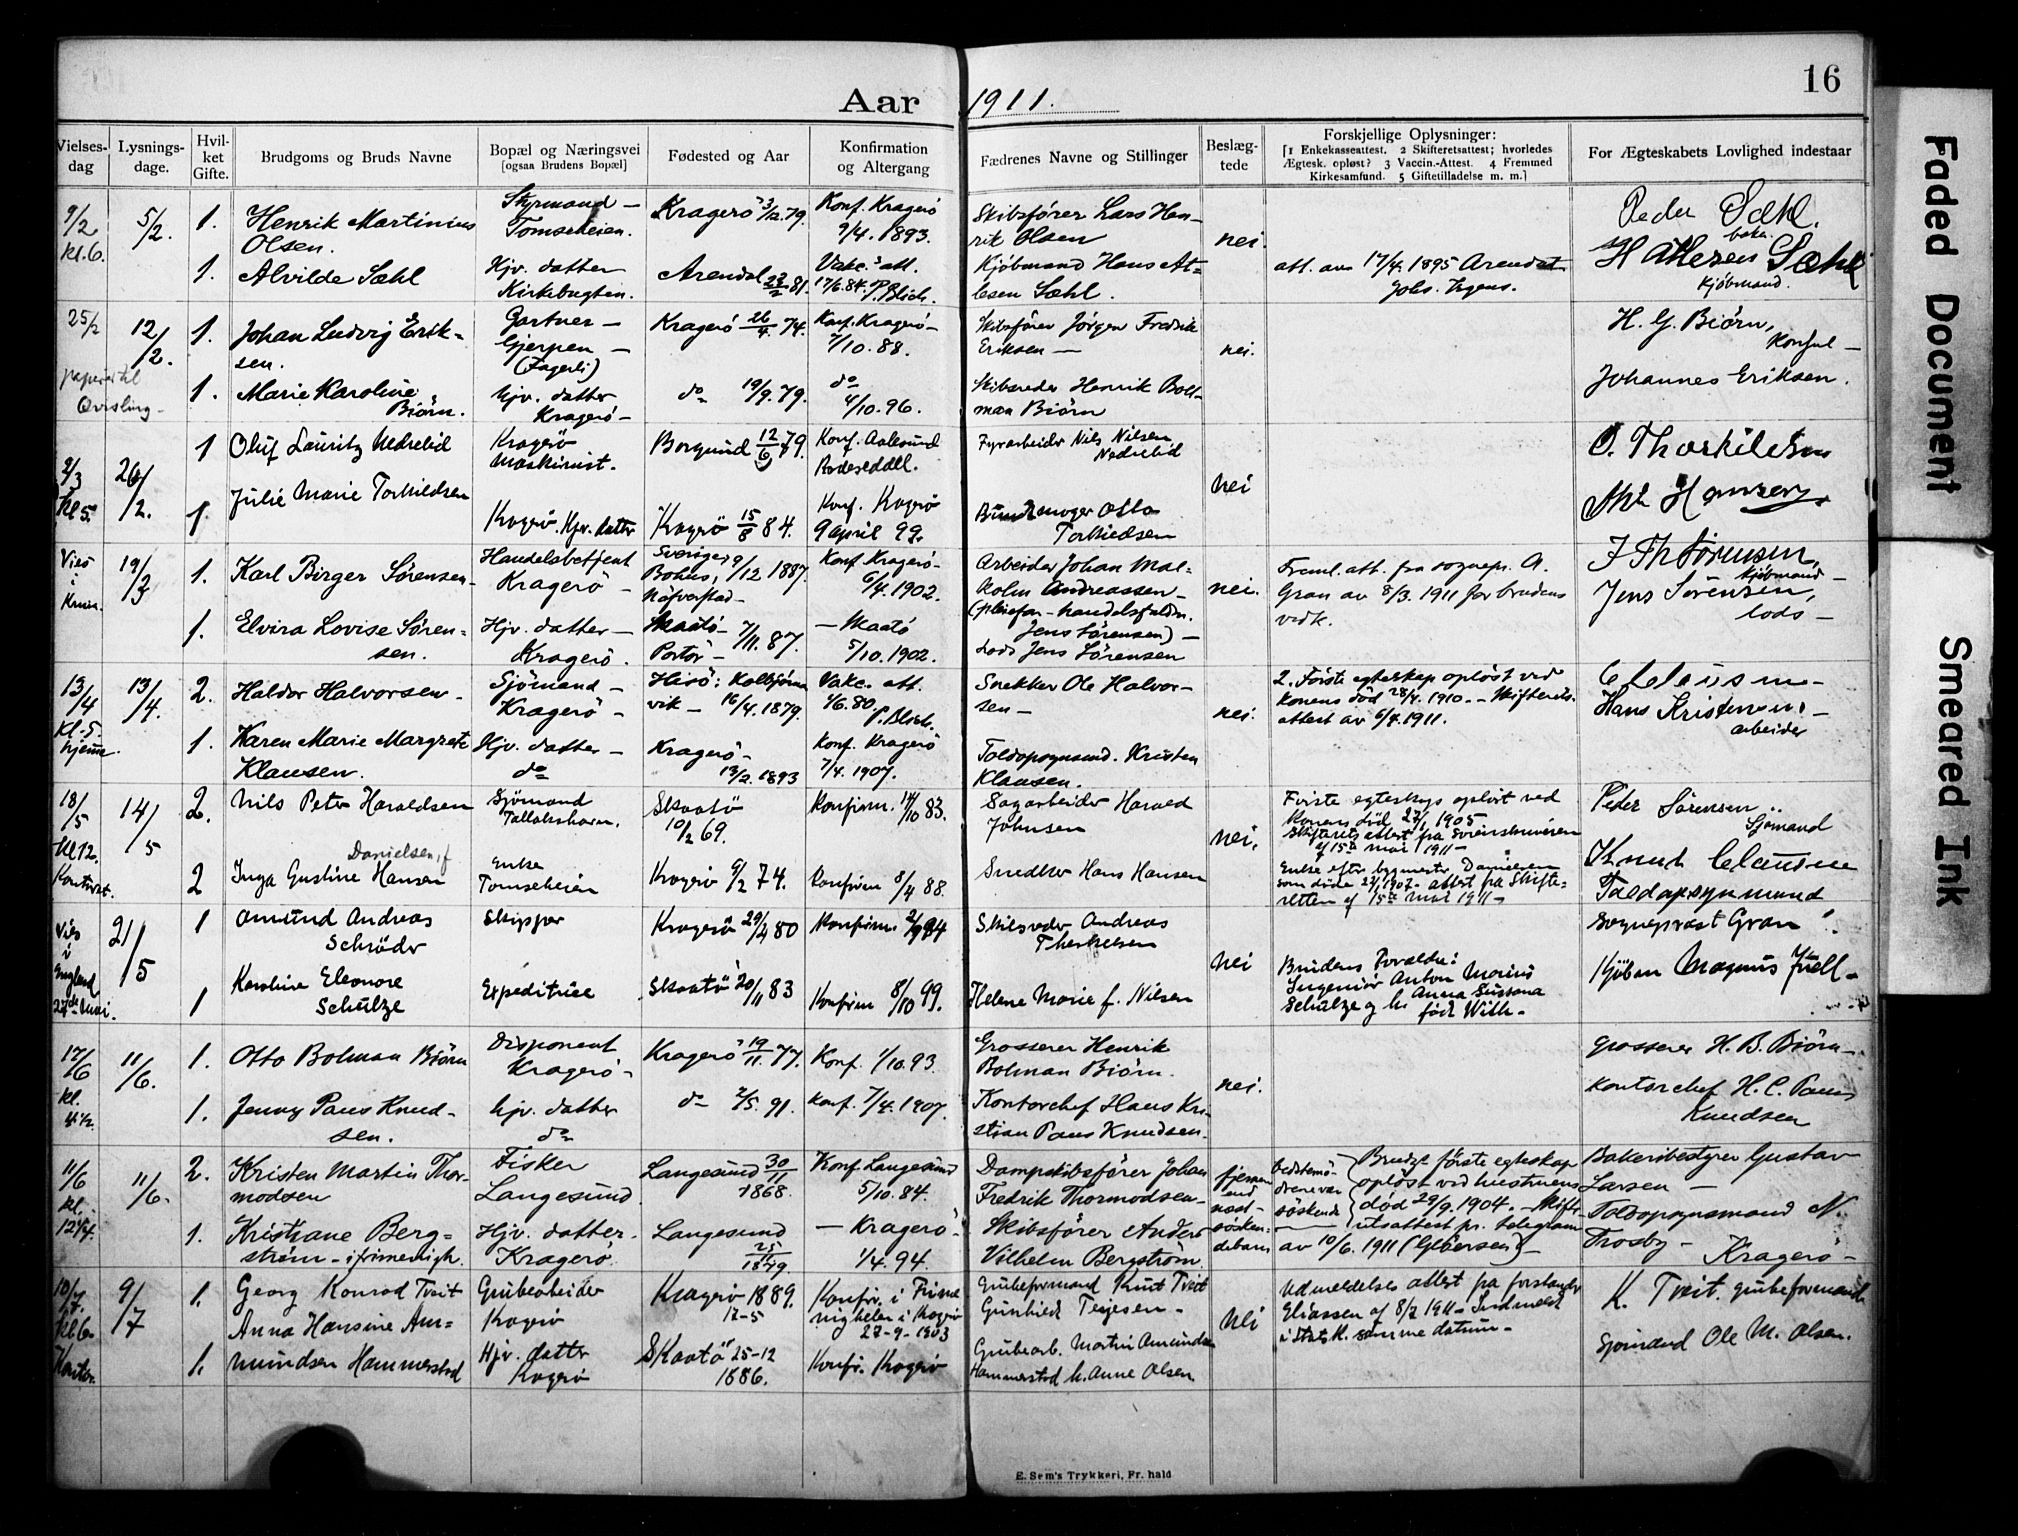 16
Aar 1911.
Vielses-dag
Lysnings-dage.
Hvil-ket Gifte.
Brudgoms og Bruds Navne
Bopæl og Næringsvei
[ogsaa Brudens Bopæl]
Fødested og Aar
Konfirmation og Altergang
Fædrenes Navne og Stillinger
Beslæg-tede
Forskjellige Oplysninger:
[1 Enkekasseattest. 2 Skifteretsattest; hvorledes
Ægtesk. opløst? 3 Vaccin.-Attest. 4 Fremmed
Kirkesamfund. 5 Giftetilladelse m. m.]
For Ægteskabets Lovlighed indestaar
9/2 kl. 6.
5/2.
1. Henrik Martinius
Olsen.
Styrmand –
Tomteheien.
Kragerö 3/2. 79.
Konf. Kragerö
9/4. 1893.
Skibsförer Lars Hen-
rik Olsen
nei.
Peder Sæhl.
1. Alvilde Sæhl
Hjv. datter
Kirkebugten.
Arendal 81.
Vakc. att.
17/6. 84. P. Blich.
Kjöbmand Hans At-
lesen Sæhl.
att. av 17/4. 1895 Arendal
H Atlesen Sæhl
Kjöbmand.
25/2
12/2.
1. Johan Ludvig Erik-
sen.
Gartner –
Gjerpen –
(Fagerli)
Kragerö 26/4. 74.
Konf. Kragerö –
7/10. 88.
Skibsförer Jörgen Fredrik
Eriksen –
nei.
H. G. Biörn,
Konsul –
papirer til
1. Marie Karoline
Biörn.
hjv. datter
Kragerö –
do 19/9. 79.
do
4/10. 96.
Skibsreder Henrik Bol-
man Biörn
Johannes Eriksen.
2/3 Kl 5.
26/2.
1 Oluf Lauritz Nedrelid
Kragerö
Maskinist.
Borgund 12/6 79.
Konf. Aalesund
Fyrarbeider Nils Nilsen
Nedrelid
nei
O. Thorkildsen
1. Julie Marie Torkildsen
Kragerö. Hjv. datter
Kragerö 15/8 84.
Konf. Kragerö
9 april 99.
Otto
Torkildsen
Hansen
Vies i
19/3
1. Karl Birger Sörensen –
Handelsbetjent
Kragerö –
Sverige,
Bohus, 9/12 1887.
Näfverstad –
Konf Kragerö –
6/4. 1902.
Arbeider Johan Mal-
kolm Andreassen –
(pleiefar – handelsfuldm.
Jens Sörensen) –
nei.
Freml. att. fra sognepr. A.
Gran av 8/3. 1911 for brudens
vedk.
J Th Sörensen,
Kjöbmand –
1. Elvira Lovise Sören-
sen.
Hjv. datter –
Kragerö.
Skaatö –
Portör – 7/11. 87.
– Skaatö
5/10. 1902.
Lods Jens Sörensen
Jens Sörensen,
lods –
13/4 kl. 5. hjemme.
13/4.
2. Haldor Halvorsen –
Sjömand –
Kragerö –
Hisö: Kolbjörns
vik – 16/4. 1879.
Vakc. att.
4/6. 80.
P. Blich.
Snekker Ole Halvor-
sen –
nei.
2. Förste egteskap oplöst ved
konens död 28/4. 1910. – Skifterets-
attest av 6/4. 1911.
C Clausen –
1. Karen Marie Margrete
Klausen.
Hjv. datter –
do
Kragerö –
13/2. 1893
Konf. Kragerö
7/4. 1907.
Toldopsynsmd. Kristen
Klausen.
Hans Kristensen, –
arbeider
18/5 Kl 12. Kontoret.
14/5
2. Nils Peter Haraldsen
Sjömand
Tallakshavn.
Skaatö
10/2 69.
Konfirm. 14/10 83.
Sagarbeider Harald
Johnsen
nei.
Förste egteskap oplöst ved
Konens död 1905
Skifteretsattest fra Sorenskriveren
af 15de mai 1911 –
Peder Sörensen
Sjömand
Danielsen, f
2 Inga Gustine Hansen
Enke
Tomteheien
Kragerö 9/2 74.
Konfirm 8/4 88.
Smedker Hans Hansen
Enke efter bygmester Danielsen
som döde 1907 – attest fra Skifte-
retten af 15de mai 1911 –
Knud Clausen
Toldopsynmand
Vies i England 27de Mai.
21/5
1 Amund Andreas
Schröder
Skipper
Kragerö 29/4 80
Konfirm. 94
Skibsreder Andreas
Therkelsen
nei
Sogneprest Gran
1 Karoline Eleonore
Schulze
Expeditrice
Skaatö 20/11 83
Konfirm 8/10 99.
Helene Marie f. Nilsen
Brudens Forældre:
Ingeniör Anton Marius
Schulze og h. Anna Sussana
född With –
Kjöbm Magnus Juell –
17/6 kl.
11/6.
1. Otto Bolman Biörn
Disponent
Kragerö –
Kragerö 19/11. 77.
Konf. 1/10. 93.
Grosserer Henrik
Bolman Biörn.
nei.
grosserer H. B. Biörn –
1. Jenny Paus Knud-
sen.
hjv. datter
do
do 2/5. 91.
Konf. 7/4. 1907.
Kontorchef Hans Kri-
stian Paus Knudsen.
kontorchef H. C. Paus
Knudsen
11/6 kl. 12 1/4.
11/6.
2. Kristen Martin Thor-
modsen
Fisker
Langesund.
Langesund 30/11
1868.
Konf Langesund
5/10. 84.
Dampskibsförer Johan
Fredrik Thormodsen –
bedstemö-
drene var
söskende
Brudg. förste egteskap
oplöst ved hustruens
död 29/9. 1904. – Skifte-
retsattest pr. telegram
av 10/6. 1911 –
Bakeribestyrer Gustav
Larsen –
1. Kristiane Berg-
ström –
Hjv. datter.
Kragerö
Langesund
25/11
– Kragerö –
1/4. 94.
Skibsförer Anders
Vilhelm Bergström.
Toldopsynsmand N.
Trosby – Kragerö –
10/7. Kl 6. Kontor.
9/7
1. Georg Konrad Tveit
Grubearbeider
Kragerö
Kragerö 1889.
12-5
Konfir. i Frime
nigheden i Kragerö
27-9-1903
Grubeformand Knut Tveit
Gunhild Terjesen –
nei
Udmeldelses attest fra forstander
Eliassen af 8/7 1911 – Indmeldt
i Statsk. samme datum –
K. Tveit. grubeformand.
1. Anna Hansine Am-
mundsen Hammerstad
Hjv. datter
Kragerö
Skaatö 25-12
1886.
Konfir. Kragerö
Grubearb. Martin Amundsen
Hammerstad h. Anne Olsen
Sjömand Ole M. Olsen.
E. Sem's Trykkeri, Fr. hald
Faded Document
Smeared Ink